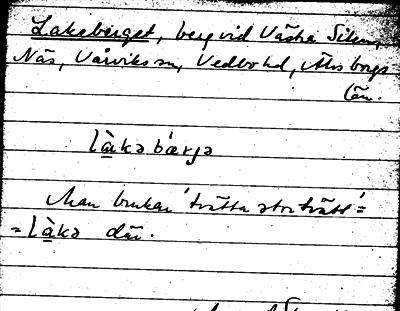 Lakeberget, berg vid Västra Silen,
Näs, Vårviks sn, Vedbo hd, Älvsborgs
län.
là̱kə bærjə
Man brukar 'tvätta stortvätt' =
= là̱kə där.